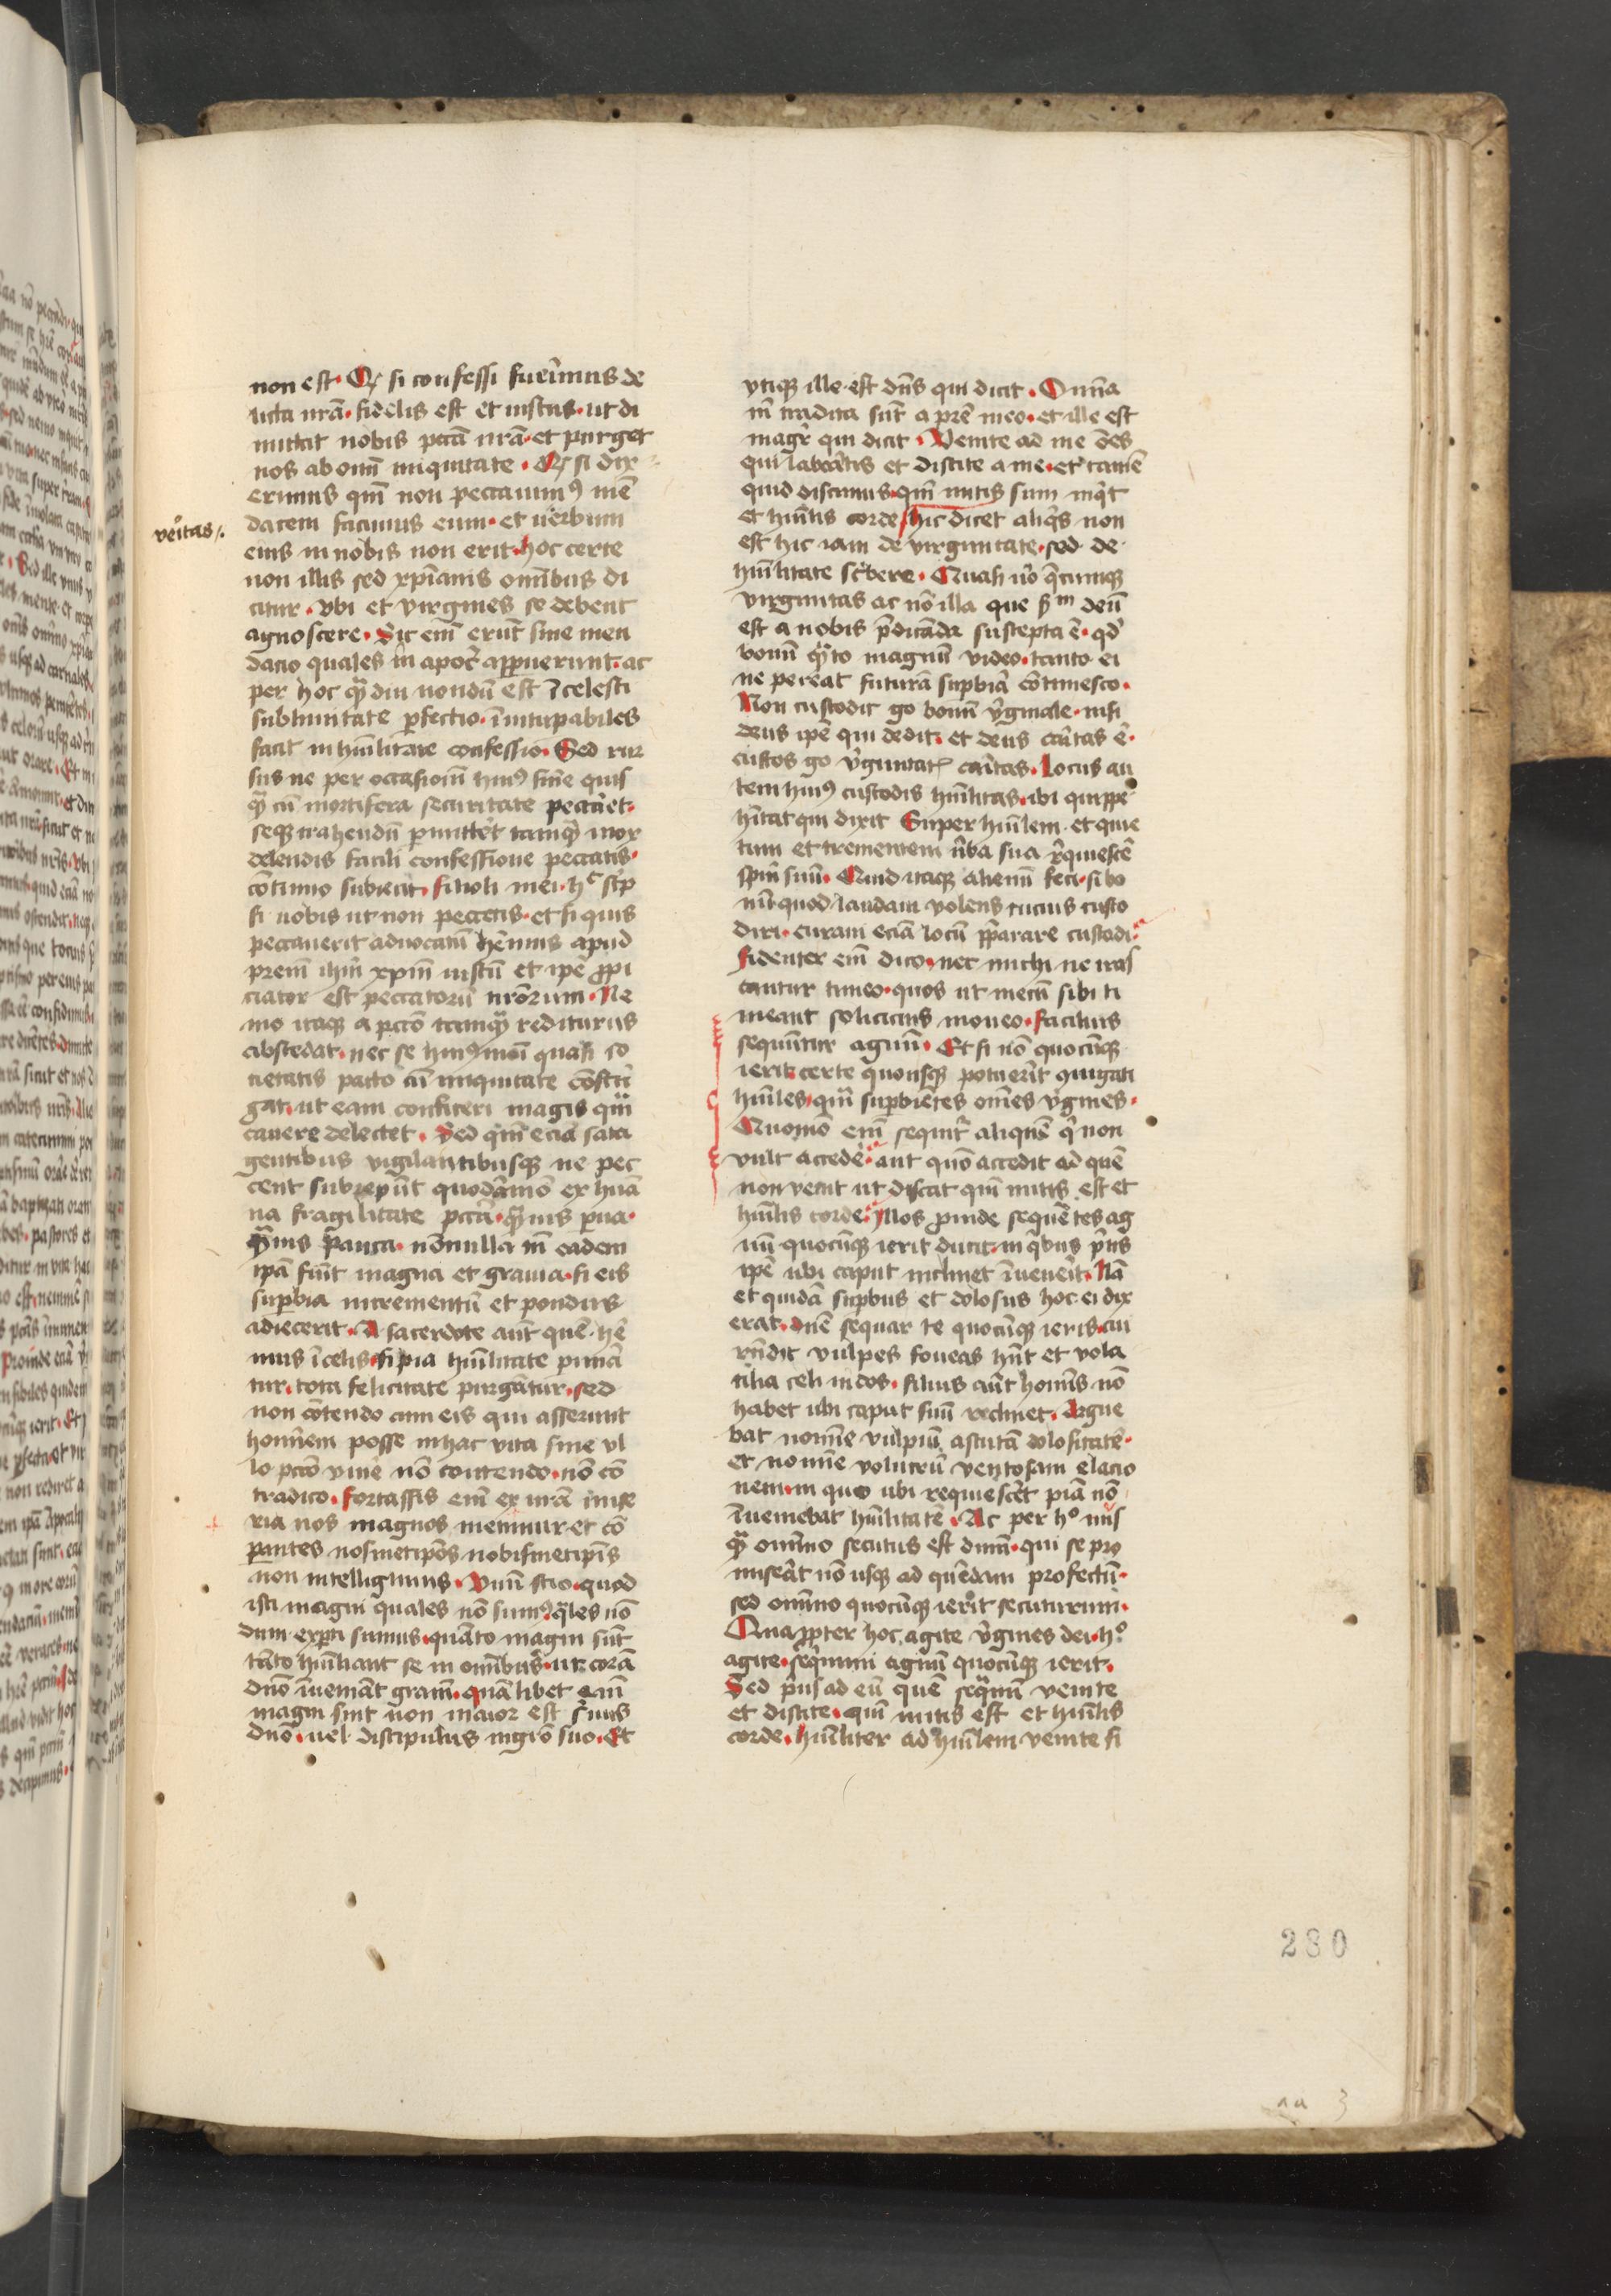 non est. Qꝛ si confessi fuerimus de
licta nrā. fidelis est et iustus. ut di
mittat nobis pctā nrā. et purget
nos ab om̄i iniquitate. Qꝛ si dix
erimus qm̄ non peccauimꝰ mē
dacem facimus eum. et uerbum
veritas /.
eius in nobis non erit. hoc certe
non illis sed xp̄ianis om̄ibus di
citur. vbi et virgines se debent
agnoscere. Sic em̄ erūt sine men
dacio quales in apoc̄ apparuerunt. ac
per hoc qͣ̄ diu nondū est ī celesti
sublimitate ꝑfectio. īuitupabiles
facit in hūilitate confessio. Sed rur
sus ne per occasionē huiꝰ sn̄ie quis
qͣ̄ cū mortifera securitate peccāet.
seqꝫ trahendū ꝑmittēt tamqͣ̄ mox
delendis facili confessione peccatis.
cōtinuo subiecit. filioli mei. hᶜ sc̄p
si uobis ut non peccetis. et si quis
peccauerit aduocatū hēmus apud
prem̄ ih̄m xp̄m iustū et ip̄e ꝓpi
ciator est peccatorū nrōrum. Ne
mo itaqꝫ a pctō tamqͣ̄ rediturus
abscedat. nec se huiꝰmōi quasi so
cietatis pacto cū iniquitate cōstri
gat. ut eam confiteri magis qͣ̄
cauere delectet. Sed qm̄ eciā sata
gentibus vigilantibusqꝫ ne pec
cent subrepūt quodāmō ex hūa
na fragilitate pctā. qͣ̄uis ꝑua.
qͣ̄uis pauca. nōnulla tn̄ eadem
ip̄a fiūt magna et grauia. si eis
suꝑbia incrementū et pondus
adiecerit. A sacerdote aūt quē hē
mus ī celis. si pia hūilitate pimā
tur. tota felicitate purgātur. sed
non cōtendo cum eis qui asserunt
homīem posse in hac vita sine vl
lo pctō viuē nō contendo. nō cō
tradico. fortassis em̄ ex nrā mise
ria nos magnos metimur. et cō
parantes nosmetip̄os nobismetip̄is
non intelligimus. Vnū scio. quod
isti magni quales nō sumꝰ. q̄les nō
dum exꝑti sumus. quāto magni sūt
tāto hūiliant se in om̄ibus. ut corā
dn̄o īueniāt gratiā. quālibet em̄
magni sint non maior est ẜuus
dn̄o. uel discipulus mgr̄o suo. Et
vtiqꝫ ille est dn̄s qui dicit. Omīa
m̄ tradita sūt a prē meo. et ille est
magr̄ qui dicit. Venite ad me ōes
qui laborātis et discite a me. et tamē
quid discimus. qm̄ mitis sum inq̄t
et hūilis corde hic dicet aliq̄s non
est hic iam de virginitate. sed de
hūilitate sc̄bere. Quasi uō q̄cumqꝫ
virginitas ac nō illa que ẜm deū
est a nobis p̄dicāda suscepta ē. qd̄
bonū qͣ̄to magnū video. tanto ei
ne pereat futurā suꝑbiā ꝑtimesco.
Non custodit go bonū v̄ginale. nisi
deus ip̄e qui dedit. et deus cāitas ē.
custos go v̄ginitatꝭ cāitas. Locus au
tem huiꝰ custodis hūilitas. ibi quippe
hītat qui dixit Super hūilem et quie
tum et trementem v̄ba sua r̄quiescē
sp̄m suū. Quid itaqꝫ alienū feci. si bo
nū quod laudaui volens tucius custo
diri. curaui eciā locū p̄parare custodi.
fidenter em̄ dico. nec michi ne iras
cantur timeo. quos ut mecū sibi ti
meant solicitus moneo. facilius
sequūntur agnū. Et si nō quocūqꝫ
ierit. certe quousqꝫ potuerīt ꝯiugati
hūiles. qͣ̄ suꝑbiētes om̄es v̄gines.
Quomō em̄ sequit᷑ aliquē q̄ non
vult accedē. aut quō accedit ad quē
non venit ut discat qm̄ mitis est et
hūilis corde. Illos ꝓinde sequētes ag
nū quocūqꝫ ierit ducit. in q̄bus p̄us
ip̄e ubi caput inclinet īuenērit. Nā
et quidā suꝑbus et dolosus hoc ei dix
erat. dn̄e sequar te quocūqꝫ ieris. cui
rn̄dit vulpes foueas hn̄t et vola
tilia celi nidos. filius aūt homīis nō
habet ubi caput suū reclinet. Argue
bat nomīe vulpiū astutā dolositatē.
et nomīe volucrū ventosam elacio
nem. in quo ubi requiescet piā nō
īueniebat hūilitatē. Ac per hᵒ nus
qͣ̄ omīno secutus est dn̄m. qui se pro
miserāt nō usqꝫ ad quēdam profectū.
sed omīno quocūqꝫ ierit secuturum.
Quapropter hoc agite v̄gines dei. hᵒ
agite. sequimini agnū quocūqꝫ ierit.
Sed p̄us ad eū quē sequamī venite
et discite. qm̄ mitis est et hūilis
corde. hūiliter ad hūilem venite si
280